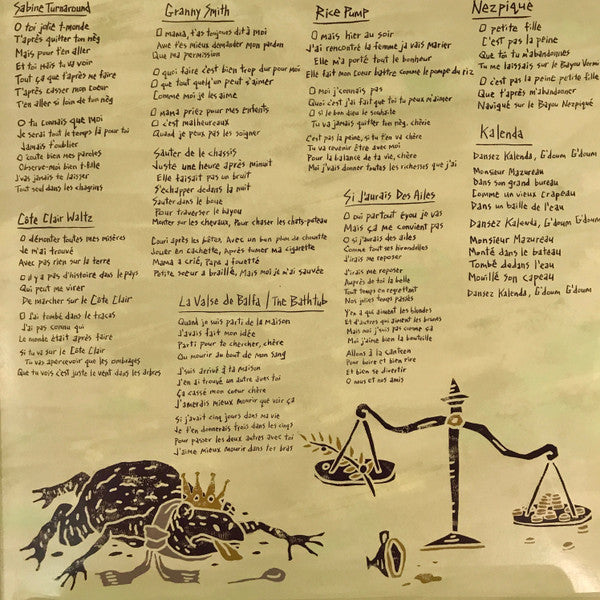 Sabine Turnaround
O toi jolie t-monde
T'après quitter ton nèg
Mais pour t'en aller
Et toi mais tu va voir
Tout ça que t'après me faire
T'après casser mon coeur
T'en aller si loin de ton nèg
O tu connais que moi
Je serai tout le temps là pour toi
Jamais t'oublier
O coute bien mes paroles
Observe-moi bien t-fille
J'vas jamais te laisser
Tout seul dans les chagrins
Côte Clair Waltz
O démonter toutes mes misères
Je m'ai trouvé
Avec pas rien sur la terre
O d'y a pas d'histoire dans le pays
Qui peut me virer
De marcher sur le Côte Clair
O j'ai tombé dans le tracas
J'ai pas connu qui
Le monde était après faire
Si tu va sur le Côte Clair
Tu vas apercevoir que les ombrages
Que tu vois c'est juste le vent dans les arbres
Granny Smith
O mama, t'as toujours dit à moi
Ave t'es mieux demander mon pardon
Que ma permission
O quoi faire c'est bien trop dur pour moi
O que tout quelqu'un peut s'aimer
Comme moi je les aime
O mama priez pour mes enfants
O c'est malheureaux
Quand je peux pas les soigner
Sauter de le chassis
Juste une heure après minuit
Elle faisait pas un bruit
S'échapper dedans la nuit
Sauter dans le boue
Pour traverser le bayou
Monter sur les chevaux, Pour chaser les chats-poteau
Couri après les pâtes, Avec un bon plan de chouette
Jouer en cachette, Après fumer ma cigarette
Mama a crié, Papa a fouetté
Petite soeur a braillé, Mais moi je m'ai sauvée
La Valse de Balfa / The Bathtub
Quand je suis parti de la maison
J'avais fait mon idée
Parti pour te chercher, chère
Ou mourir au bout de mon sang
J'suis arrivé à ta maison
J'en ai trouvé un autre avec toi
Ça cassé mon coeur chère
J'amerais mieux mourir que voir ça
Si j'avait cinq jours dans ma vie
Je t'en donnerais trois dans les cinqs
Pour passer les deux autres avec toi
J'aime mieux mourir dans tes bras
Rice Pump
O mais hier au soir
J'ai rencontré la femme ja vais marier
Elle m'a porté tout le bonheur
Elle fait mon coeur battre comme le pompe du riz
O moi j'connais pas
Quoi c'est j'ai fait que toi tu peux m'aimer
O si le bon dieu le souhaite
Tu va jamais quitter ton nèg, chérie
C'est pas la peine, si tu t'en va chère
Tu va revenir être avec moi
Pour la balance de ta vie, chère
Moi j'vais donner toutes les richesses que j'ai
Si J'aurais Des Ailes
O oui partout éyou je vas
Mais ça me convient pas
O si j'aurais des ailes
Comme tout ses hirondelles
J'irais me reposer
J'irais me reposer
Auprès de toi la belle
Tout songs en regrettant
Nos jolies temps passés
Y'en a qui aiment les blondes
Et d'autres qui aiment les bruns
Mais moi j'suis pas comme ça
Moi j'aime bien la bouteille
Allons à la canteen
Pour boire et bien rire
Et bien se divertir
O nous et nos amis
Nezpique
O petite fille
C'est pas la peine
Que toi tu m'abandonnes
Tu me laissais sur le Bayou
O c'est pas la peine petite fille
Que t'après m'abandonner
Navigué sur le Bayou Nezpiqué
Kalenda
Dansez Kalenda, G'doum G'doum
Monsieur Mazureau
Dans son grand bureau
Comme un vieux crapeau
Dans un baille de l'eau
Dansez Kalenda, G'doum G'doum
Monsieur Mazureau
Monté dans le bateau
Tombé dedans l'eau
Mouillé son capeau
Dansez Kalenda, G'doum G'doum